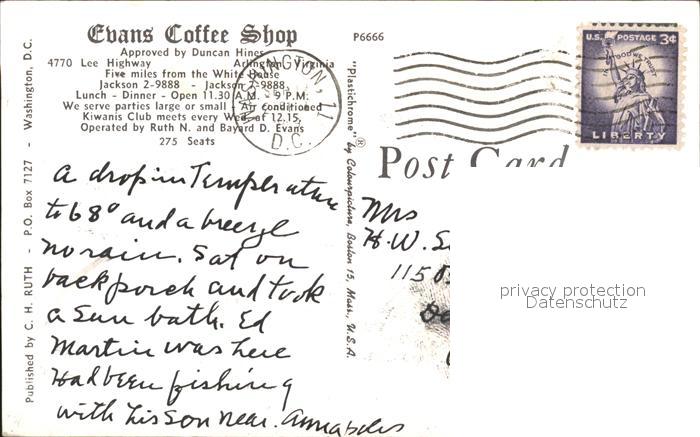 Evans Coffee Shop
Approved by Duncan Hines
4770 Lee Highway Arlington, Virginia
Five miles from the White House
Jackson 2-9888 - Jackson 7-9888
Lunch - Dinner - Open 11.30 A.M. - 9 P.M.
We serve parties large or small - Air conditioned
Kiwanis Club meets every Wed. at 12.15,
Operated by Ruth N. and Bayard D. Evans
275 Seats
A drop in Temperature
to 68° and a breeze
no rain. Sat on
back porch and took
a sun bath. Ed
Martin was here
Had been fishing
with his son near Annapolis
Published by C. H. RUTH - P.O. Box 7127 - Washington, D.C.
"Plastichrome"® by Colourpicture, Boston 15, Mass., U.S.A.
P6666
D.C.
U.S. POSTAGE 3¢
IN GOD WE TRUST
LIBERTY
Post Card
Mrs
H. W.
115
privacy protection
Datenschutz